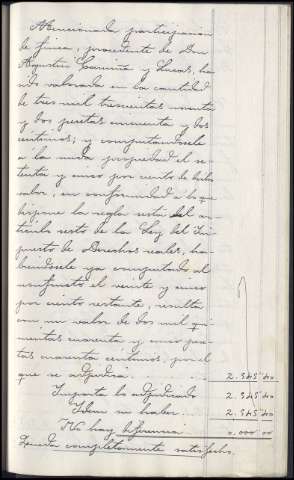 Mencionada participación
de finca, procedente de Don
Agustín y Lucas, ha
sido valorada en la cantidad
de tres mil trescientas noventa
y dos pesetas cincuenta y dos
centimos; y computandosele
a la nuda propiedad el se-
tenta y cinco por ciento de dicho
valor, en conformidad á lo que
dispone la regla del ar-
tículo sesto de la Ley del Im-
puesto de Derechos reales, ha-
biendosele ya computado al
usufructo el veinte y cinco
por ciento restante, resulta
con un valor de dos mil qui-
nientas cuarenta y cinco pese-
tas cuarenta centimos, por el
que se adjudica. 2.545 40
Importa lo adjudicado 2.545 40
Idem su haber 2.545 40
No hay diferencia 0.000 00
Queda completamente satisfecho.